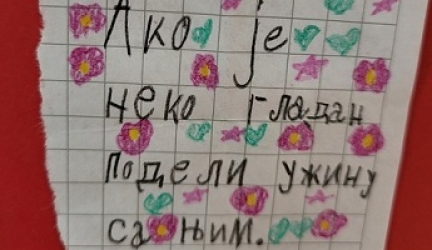 Ако је
неко гладан
подели ужину
са њим.